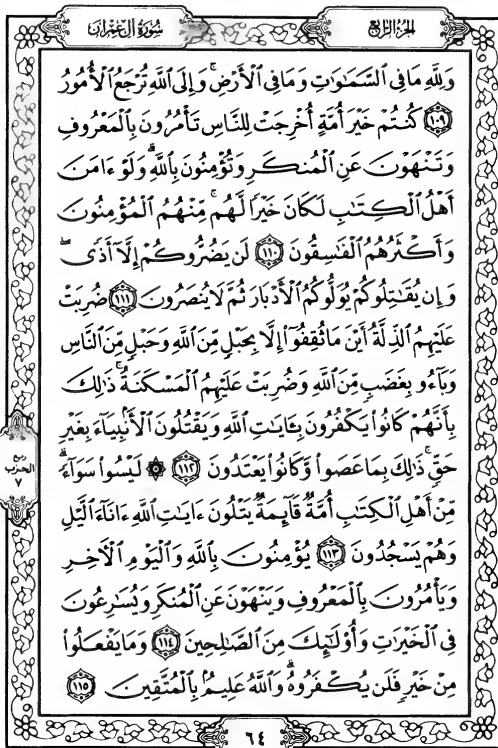 سُورَةُ آلِ عِمْرَانَ
الجُزءُ الرَّابِعُ
وَلِلَّهِ مَا فِي ٱلسَّمَٰوَٰتِ وَمَا فِي ٱلْأَرْضِ ۚ وَإِلَى ٱللَّهِ تُرْجَعُ ٱلْأُمُورُ
﴿١٠٩﴾ كُنتُمْ خَيْرَ أُمَّةٍ أُخْرِجَتْ لِلنَّاسِ تَأْمُرُونَ بِٱلْمَعْرُوفِ
وَتَنْهَوْنَ عَنِ ٱلْمُنكَرِ وَتُؤْمِنُونَ بِٱللَّهِ ۗ وَلَوْ ءَامَنَ
أَهْلُ ٱلْكِتَٰبِ لَكَانَ خَيْرًا لَّهُم ۚ مِّنْهُمُ ٱلْمُؤْمِنُونَ
وَأَكْثَرُهُمُ ٱلْفَٰسِقُونَ ﴿١١٠﴾ لَن يَضُرُّوكُمْ إِلَّآ أَذًى ۖ
وَإِن يُقَٰتِلُوكُمْ يُوَلُّوكُمُ ٱلْأَدْبَارَ ثُمَّ لَا يُنصَرُونَ ﴿١١١﴾ ضُرِبَتْ
عَلَيْهِمُ ٱلذِّلَّةُ أَيْنَ مَا ثُقِفُوٓا۟ إِلَّا بِحَبْلٍ مِّنَ ٱللَّهِ وَحَبْلٍ مِّنَ ٱلنَّاسِ
وَبَآءُو بِغَضَبٍ مِّنَ ٱللَّهِ وَضُرِبَتْ عَلَيْهِمُ ٱلْمَسْكَنَةُ ۚ ذَٰلِكَ
بِأَنَّهُمْ كَانُوا۟ يَكْفُرُونَ بِـَٔايَٰتِ ٱللَّهِ وَيَقْتُلُونَ ٱلْأَنۢبِيَآءَ بِغَيْرِ
حَقٍّ ۚ ذَٰلِكَ بِمَا عَصَوا۟ وَّكَانُوا۟ يَعْتَدُونَ ﴿١١٢﴾ ۞ لَيْسُوا۟ سَوَآءً ۗ
مِّنْ أَهْلِ ٱلْكِتَٰبِ أُمَّةٌ قَآئِمَةٌ يَتْلُونَ ءَايَٰتِ ٱللَّهِ ءَانَآءَ ٱلَّيْلِ
وَهُمْ يَسْجُدُونَ ﴿١١٣﴾ يُؤْمِنُونَ بِٱللَّهِ وَٱلْيَوْمِ ٱلْأَخِرِ
وَيَأْمُرُونَ بِٱلْمَعْرُوفِ وَيَنْهَوْنَ عَنِ ٱلْمُنكَرِ وَيُسَٰرِعُونَ
فِي ٱلْخَيْرَٰتِ وَأُو۟لَٰٓئِكَ مِنَ ٱلصَّٰلِحِينَ ﴿١١٤﴾ وَمَا يَفْعَلُوا۟
مِنْ خَيْرٍ فَلَن يُكْفَرُوهُ ۗ وَٱللَّهُ عَلِيمٌۢ بِٱلْمُتَّقِينَ ﴿١١٥﴾
ربع
الحزب
٧
٦٤